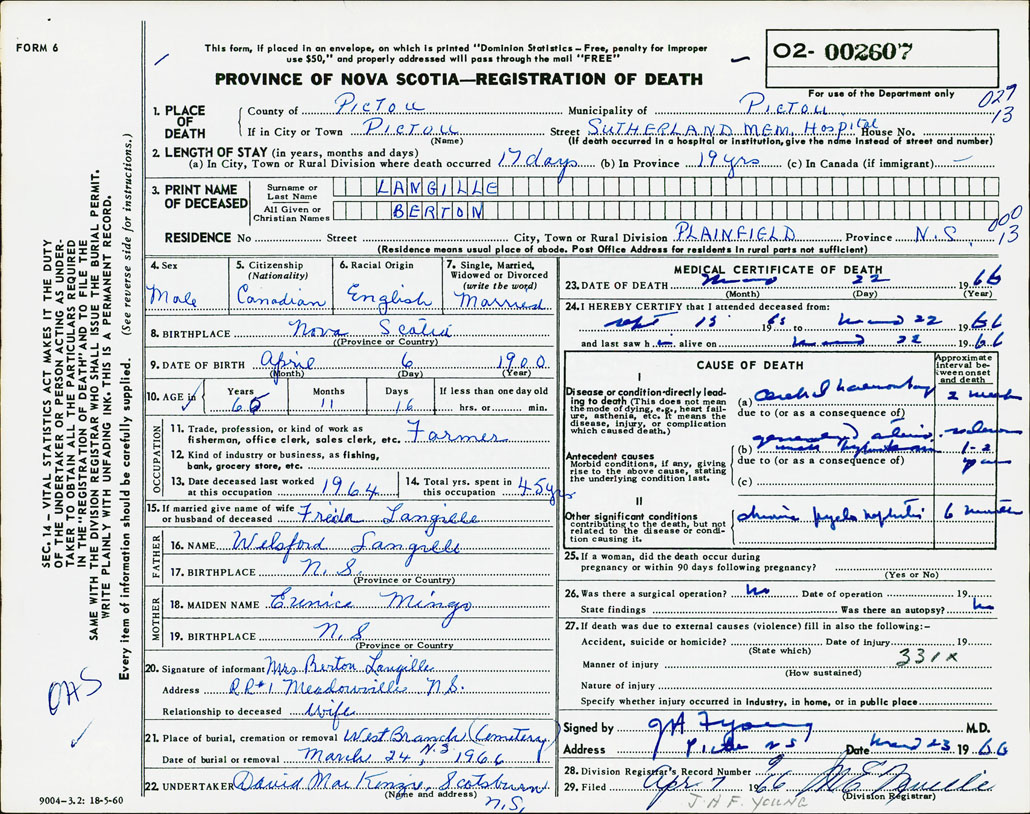 FORM 6
This form, if placed in an envelope, on which is printed "Dominion Statistics – Free, penalty for improper
use $50," and properly addressed will pass through the mail "FREE"
PROVINCE OF NOVA SCOTIA—REGISTRATION OF DEATH
02- 002607
For use of the Department only
027
13
1. PLACE OF DEATH
County of PICTOU Municipality of PICTOU
If in City or Town PICTOU Street SUTHERLAND MEM. Hospital House No.
(Name) (If death occurred in a hospital or institution, give the name instead of street and number)
2. LENGTH OF STAY (in years, months and days)
(a) In City, Town or Rural Division where death occurred 17 days (b) In Province 19 yrs (c) In Canada (if immigrant) —
3. PRINT NAME OF DECEASED
Surname or Last Name LANGILLE
All Given or Christian Names BERTON
000
13
RESIDENCE No Street City, Town or Rural Division PLAINFIELD Province N.S.
(Residence means usual place of abode. Post Office Address for residents in rural parts not sufficient)
4. Sex Male
5. Citizenship (Nationality) Canadian
6. Racial Origin English
7. Single, Married, Widowed or Divorced (write the word) Married
8. BIRTHPLACE Nova Scotia
(Province or Country)
9. DATE OF BIRTH April 6 1900
(Month) (Day) (Year)
10. AGE in Years 65 Months 11 Days 16 If less than one day old hrs. or min.
OCCUPATION
11. Trade, profession, or kind of work as fisherman, office clerk, sales clerk, etc. Farmer
12. Kind of industry or business, as fishing, bank, grocery store, etc.
13. Date deceased last worked at this occupation 1964
14. Total yrs. spent in this occupation 45 yrs
15. If married give name of wife or husband of deceased Freda Langille
FATHER
16. NAME Welsford Langille
17. BIRTHPLACE N.S.
(Province or Country)
MOTHER
18. MAIDEN NAME Eunice Mingo
19. BIRTHPLACE N.S
(Province or Country
20. Signature of informant Mrs Berton Langille
Address R.R#1 Meadowville N.S.
Relationship to deceased Wife
21. Place of burial, cremation or removal West Branch (Cemetery) N.S
Date of burial or removal March 24, 1966
22. UNDERTAKER David MacKenzie, Scotsburn
(Name and address) N.S.
9004–3.2: 18-5-60
MEDICAL CERTIFICATE OF DEATH
23. DATE OF DEATH March 22 1966
(Month) (Day) (Year)
24. I HEREBY CERTIFY that I attended deceased from:
Sept 15 1965 to March 22 1966
and last saw h im alive on March 22 1966
CAUSE OF DEATH
Approximate interval between onset and death
I
Disease or condition-directly leading to death (This does not mean the mode of dying, e.g., heart failure, asthenia, etc. It means the disease, injury, or complication which caused death.)
(a) Cerebral haemorrhage 2 weeks
due to (or as a consequence of)
Antecedent causes
Morbid conditions, if any, giving rise to the above cause, stating the underlying condition last.
(b) generalized
due to (or as a consequence of) 1-2 years
(c)
II
Other significant conditions contributing to the death, but not related to the disease or condition causing it.
chronic pyelo nephritis 6 months
25. If a woman, did the death occur during
pregnancy or within 90 days following pregnancy?
(Yes or No)
26. Was there a surgical operation? No Date of operation 19
State findings Was there an autopsy? No
27. If death was due to external causes (violence) fill in also the following:–
Accident, suicide or homicide? Date of injury 19
(State which)
331X
Manner of injury
(How sustained)
Nature of injury
Specify whether injury occurred in Industry, in home, or in public place
Signed by J H F Young M.D.
Address Pictou N S Date March 23 1966
28. Division Registrar's Record Number 9
29. Filed Apr 7 1966
(Division Registrar)
J.H.F. YOUNG
SEC. 14 – VITAL STATISTICS ACT MAKES IT THE DUTY
OF THE UNDERTAKER OR PERSON ACTING AS UNDER-
TAKER TO OBTAIN ALL THE PARTICULARS REQUIRED
IN THE "REGISTRATION OF DEATH" AND TO FILE THE
SAME WITH THE DIVISION REGISTRAR WHO SHALL ISSUE THE BURIAL PERMIT.
WRITE PLAINLY WITH UNFADING INK. THIS IS A PERMANENT RECORD.
Every item of information should be carefully supplied. (See reverse side for instructions.)
OAS